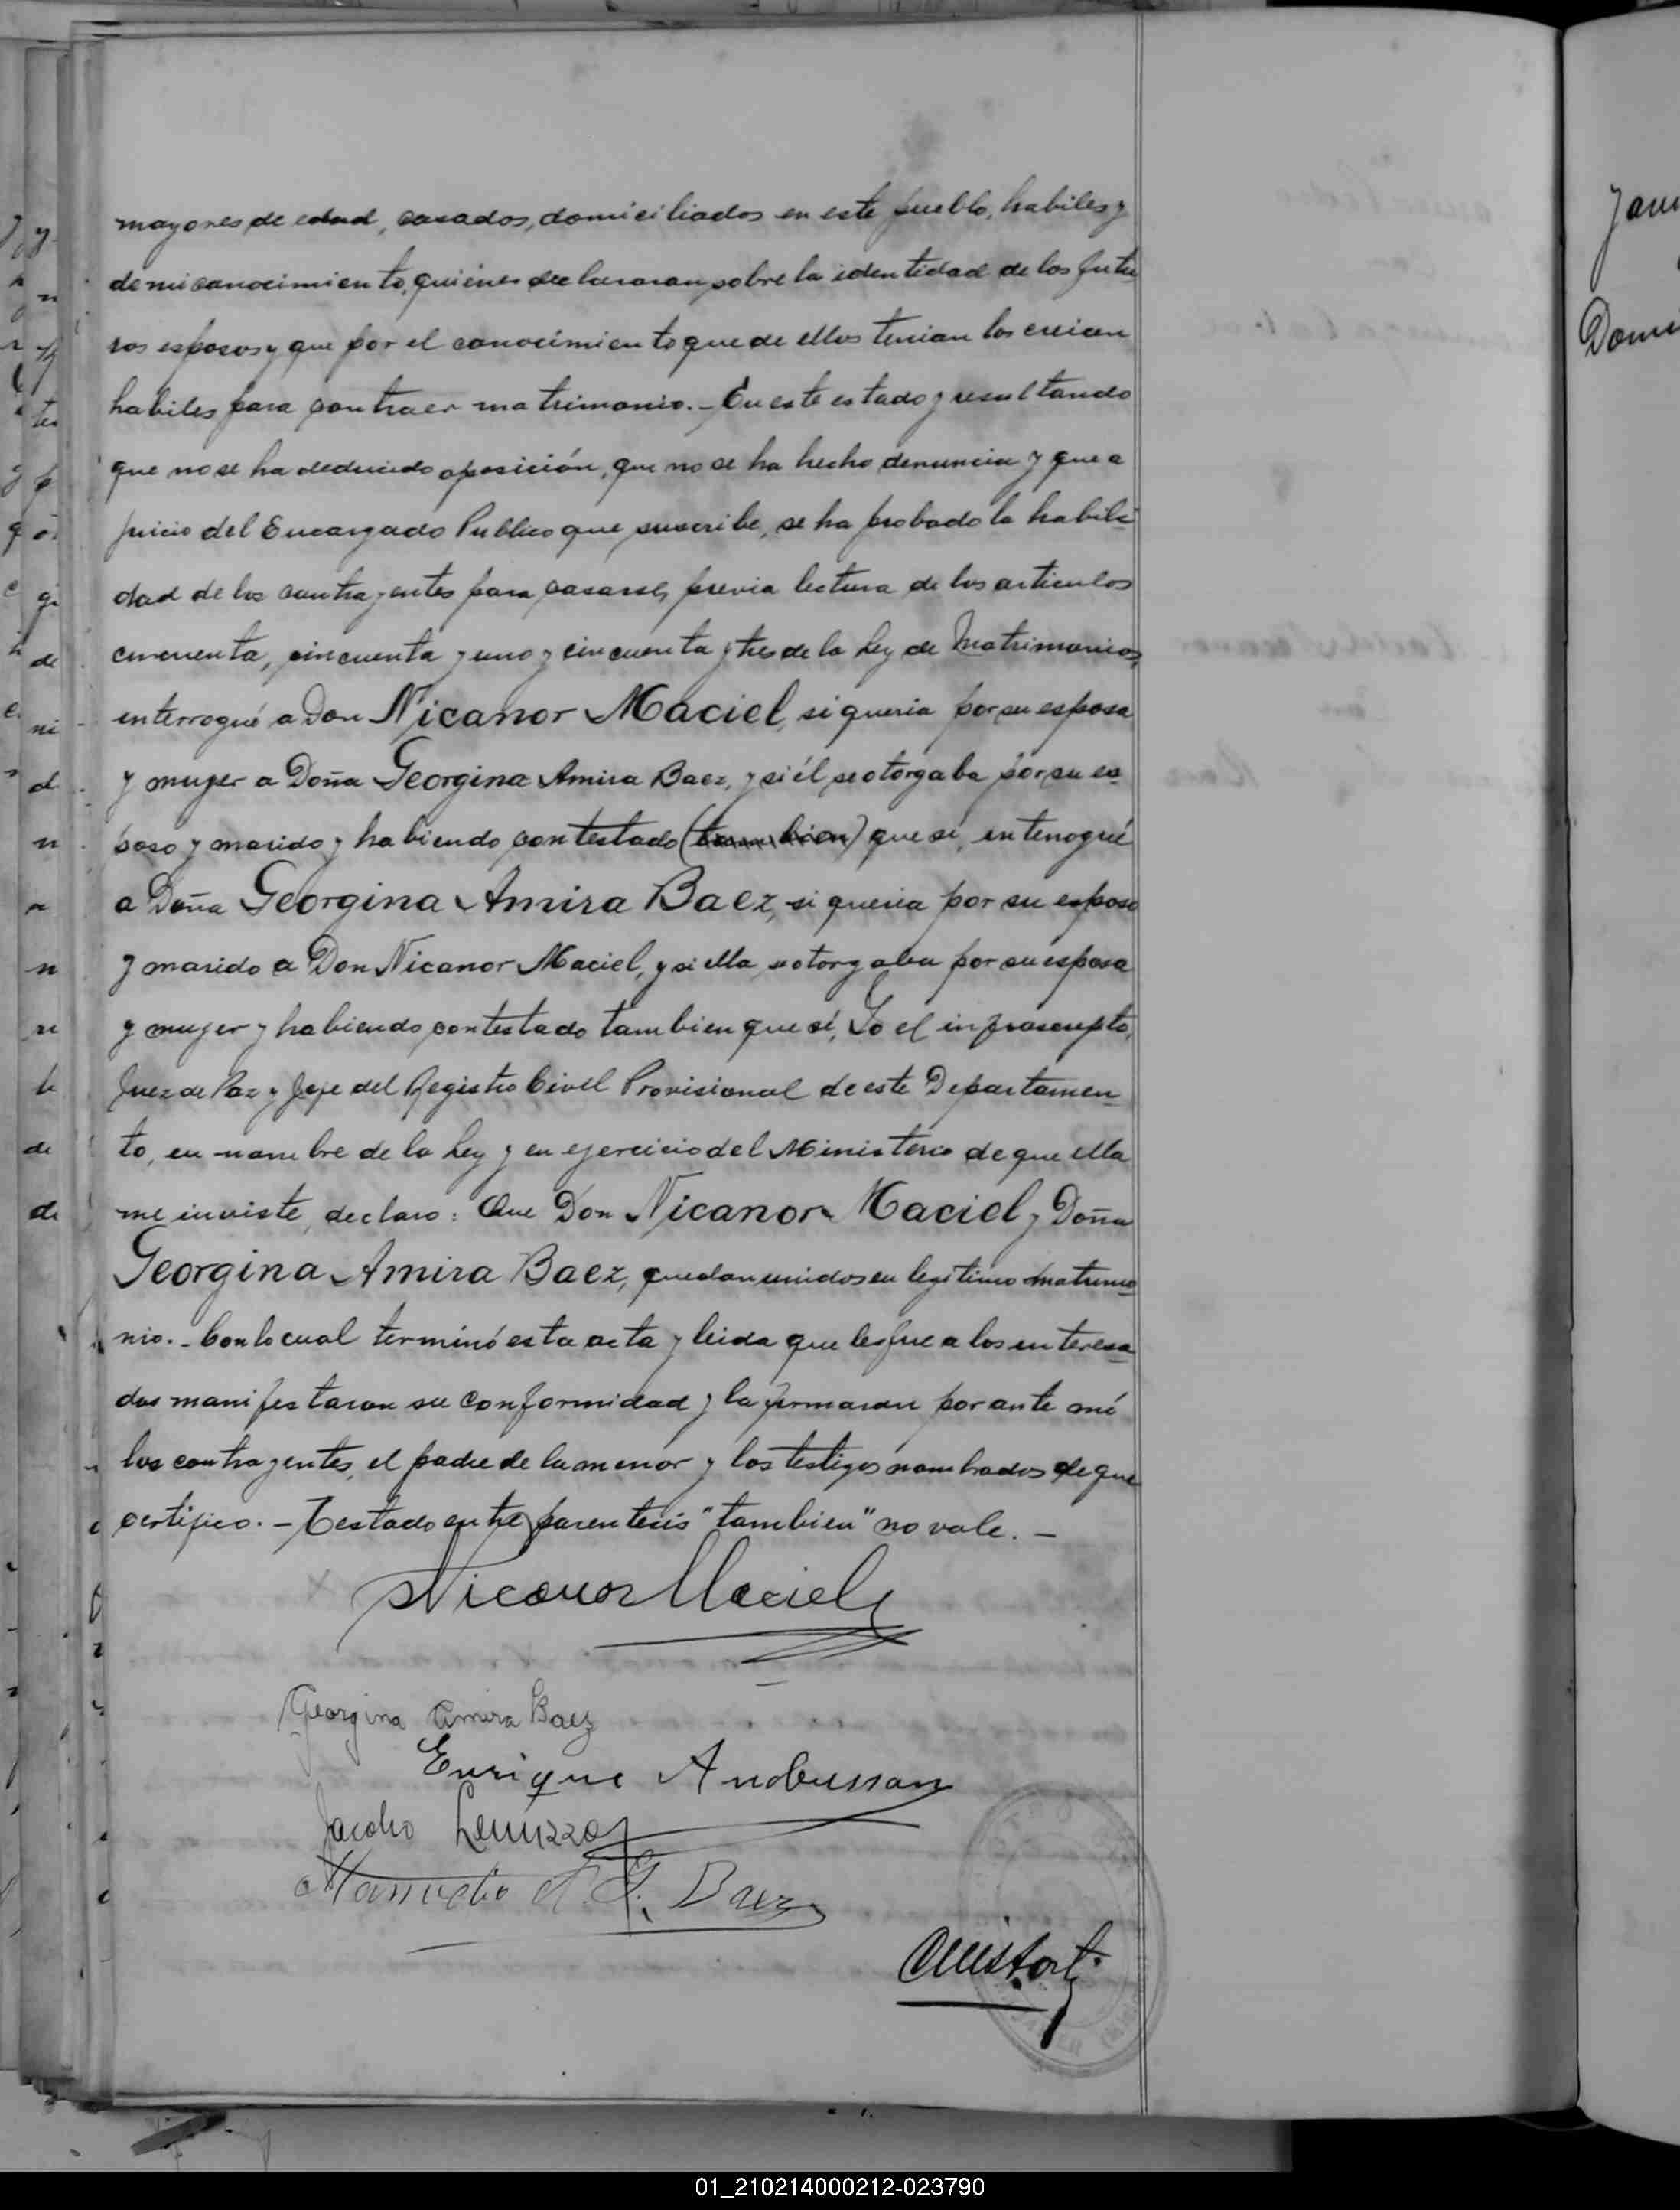 mayores de edad, casados, domiciliados en este pueblo, habiles y
de mi conocimiento, quienes declararan sobre la identidad de los futu
ros esposos y que por el conocimiento que de ellos tenian los creian
habiles para contraer matrimonio. - En este estado y resultando
que no se ha deducido oposición, que no se ha hecho denuncia y que a
juicio del Encargado Publico que suscribe, se ha probado la habili
dad de los contrayentes para casarse, previa lectura de los articulos
cincuenta, cincuenta y uno y cincuenta y tres de la Ley de Matrimonios,
interrogué a Don Nicanor Maciel, si queria por su esposa
y mujer a Doña Georgina Amira Baez, y si él se otorgaba por su es-
poso y marido y habiendo contestado (también) que sí, interrogué
a Doña Georgina Amira Baez, si queria por su esposo
y marido a Don Nicanor Maciel, y si ella se otorgaba por su esposa
y mujer y habiendo contestado tambien que sí, Yo el infrascripto,
Juez de Paz y Jefe del Registro Civil Provisional de este Departamen-
to, en nombre de la Ley y en ejercicio del Ministerio de que ella
me inviste, declaro: Que Don Nicanor Maciel y Doña
Georgina Amira Baez, quedan unidos en legitimo matrimo-
nio. - Con lo cual terminó esta acta y leida que les fue a los interesa-
dos manifestaron su conformidad y la firmaron por ante mí
los contrayentes, el padre de la menor y los testigos nombrados de que
certifico. - Testado entre parentesis "tambien" no vale. -
Nicanor Maciel
Georgina Amira Baez
Enrique Aubussan
Jacobo
Baez
Dom
01_210214000212-023790